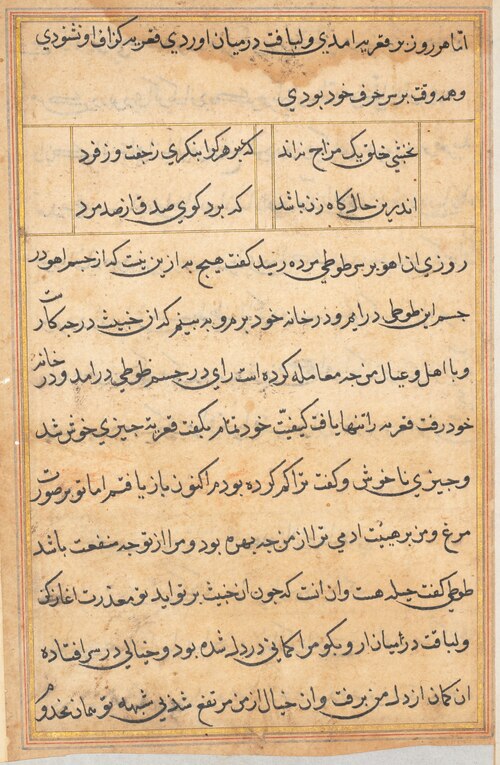 اما هر روز بر قعریه امدی و لباقت در میان اوردی قعریه کزاف او نشودی
و همه وقت بر سر حرف خود بودی
نخشبی خلق یک مزاج نه‌اند
که بهر کرا بنکری ز جفت و ز فرد
اندرین حال کاه زن باشد
که برد کوی صدق از صد مرد
روزی ان اهو بر سر طوطی مرده رسید کفت هیچ به ازین نیست که از جسم اهو در
جسم این طوطی در ایم و در خانه خود بروم و به بینم که ان خبیث در چه کارست
و با اهل و عیال من چه معامله کرده است رای در جسم طوطی در امد و در خانه
خود رفت قعریه را تنها یافت کیفیت خود تمام بکفت قعریه چیزی خوش شد
و چیزی ناخوش و کفت ترا کم کرده بودم اکنون باز یافتم اما تو بر صورت
مرغ و من بر هیئت ادمی ترا از من چه بهره بود و مرا از تو چه منفعت باشد
طوطی کفت حیله هست و ان انست که چون ان خبیث بر تو اید تو معذرت اغاز کن
و لباقت در میان ار و بکو مرا کمانی در دل شده بود و خیالی در سر افتاده
ان کمان از دل من برفت و ان خیال از من مرتفع شد بی شبهه تو همان مخدوم